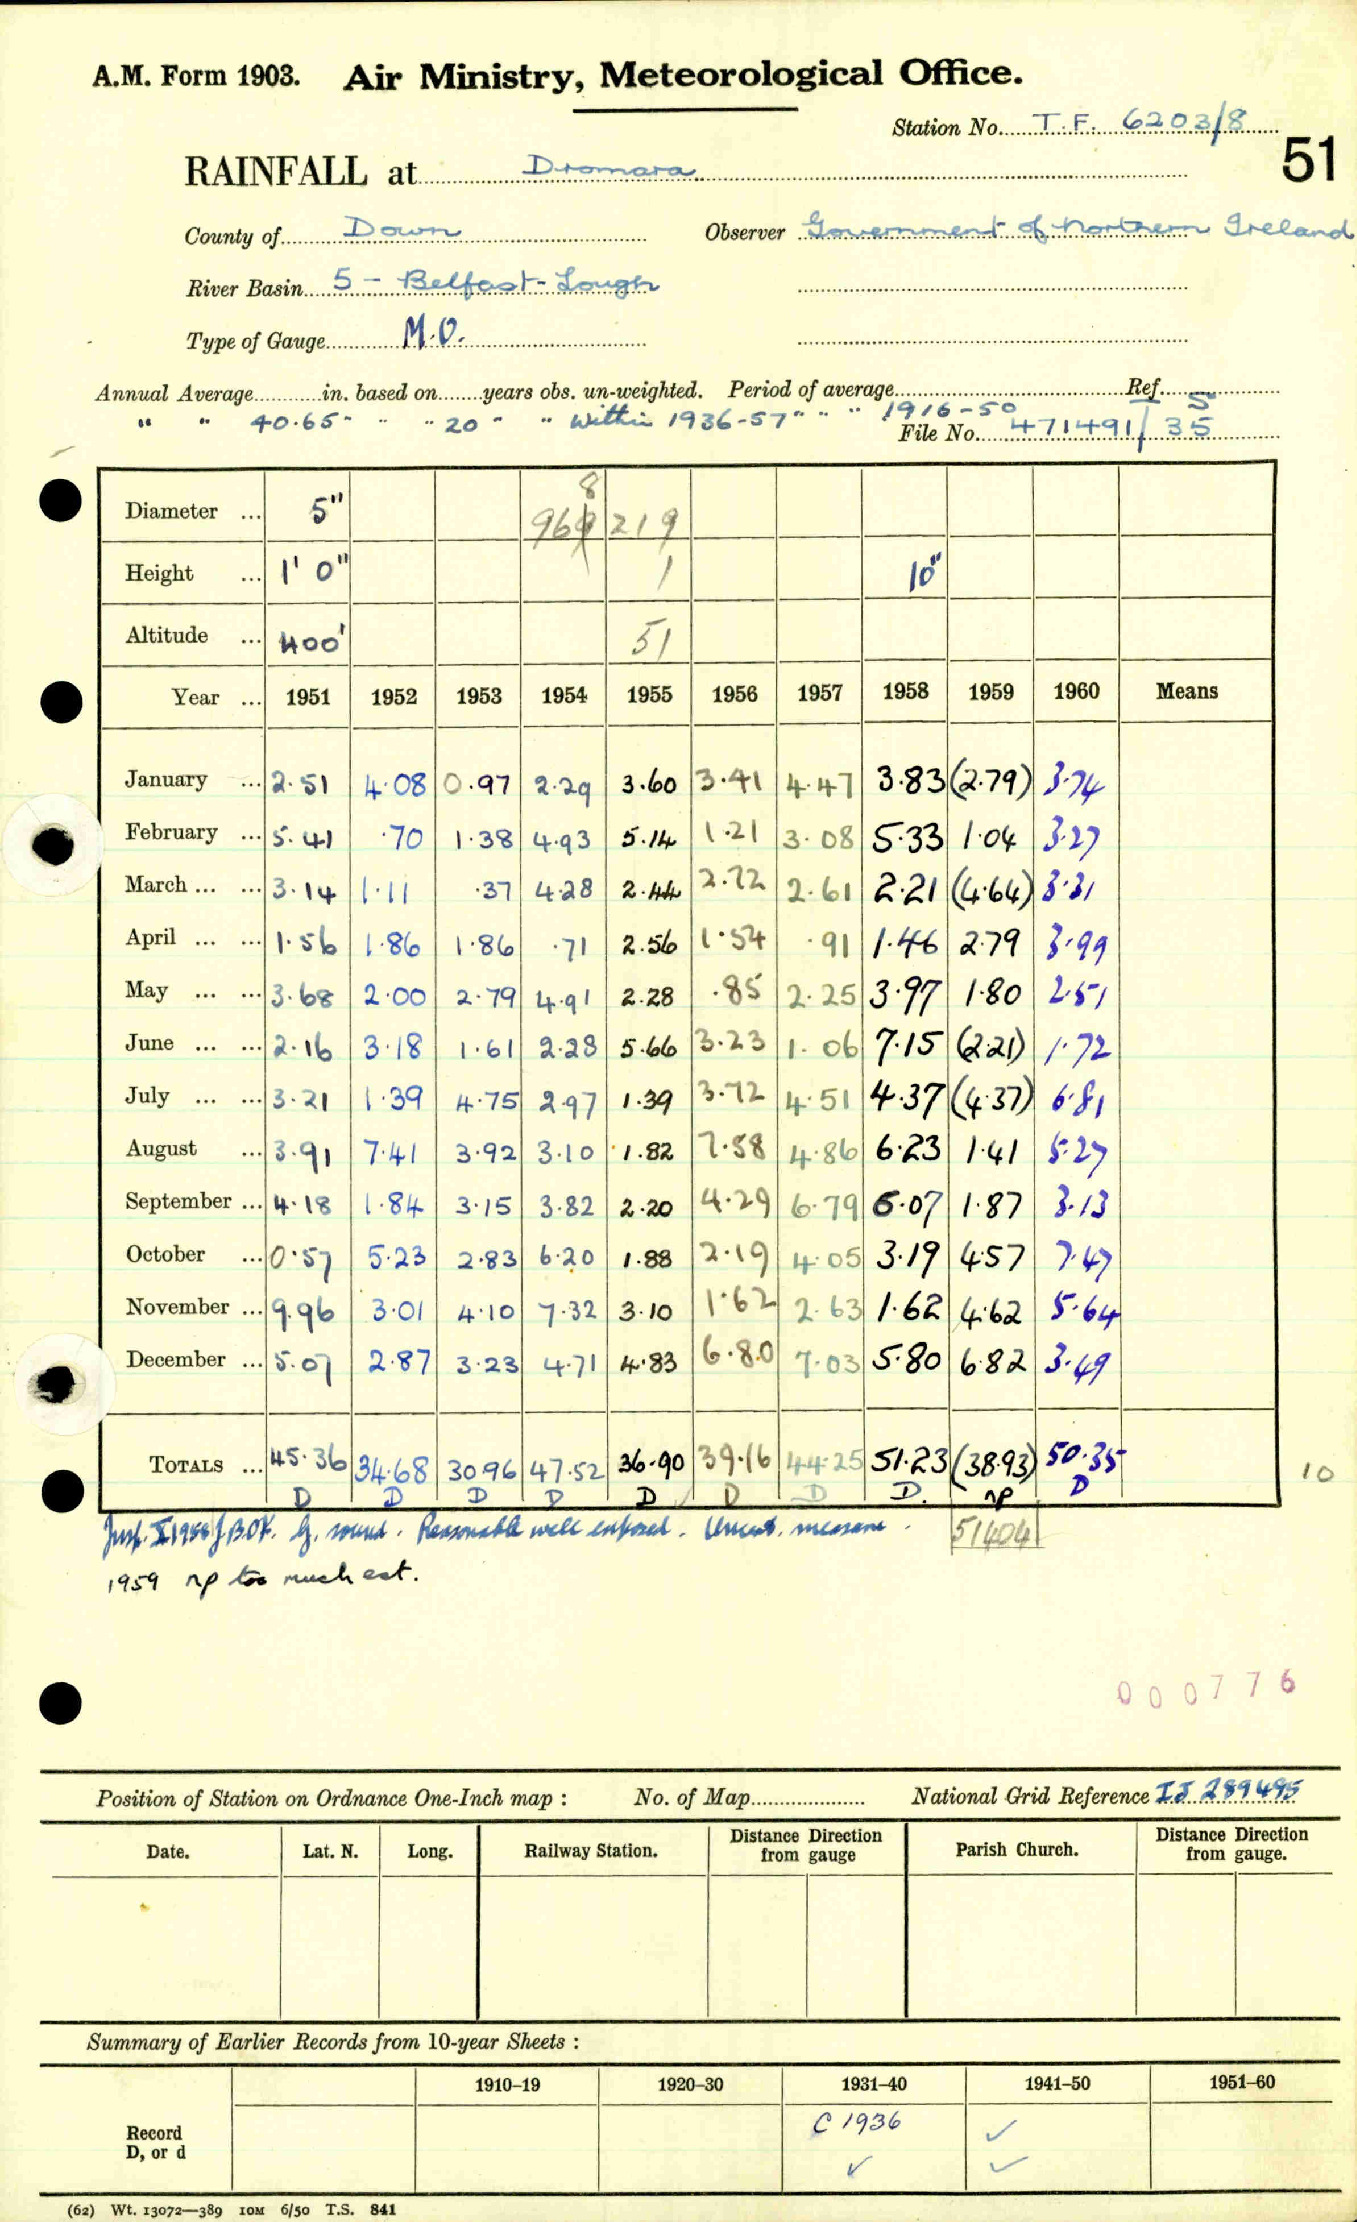 A.M. Form 1903. Air Ministry, Meteorological Office.
Station No. T.F. 6203/8
51
RAINFALL at Dromara
County of Down Observer Government of Northern Ireland
River Basin 5 - Belfast-Lough
Type of Gauge M.O.
Annual Average in. based on years obs. un-weighted. Period of average Ref. 5
" " 40.65" " " 20 " " Within 1936-57 " " " 1916-50
File No. 471491/35
Diameter ... 5" 8 969 219
Height ... 1' 0" 1 10"
Altitude ... 400' 51
Year ... 1951 1952 1953 1954 1955 1956 1957 1958 1959 1960 Means
January ... 2.51 4.08 0.97 2.29 3.60 3.41 4.47 3.83 (2.79) 3.74
February ... 5.41 .70 1.38 4.93 5.14 1.21 3.08 5.33 1.04 3.27
March ... ... 3.14 1.11 .37 4.28 2.44 2.72 2.61 2.21 (4.64) 3.31
April ... ... 1.56 1.86 1.86 .71 2.56 1.54 .91 1.46 2.79 3.99
May ... ... 3.68 2.00 2.79 4.91 2.28 .85 2.25 3.97 1.80 2.51
June ... ... 2.16 3.18 1.61 2.28 5.66 3.23 1.06 7.15 (2.21) 1.72
July ... ... 3.21 1.39 4.75 2.97 1.39 3.72 4.51 4.37 (4.37) 6.81
August ... 3.91 7.41 3.92 3.10 1.82 7.58 4.86 6.23 1.41 5.27
September ... 4.18 1.84 3.15 3.82 2.20 4.29 6.79 6.07 1.87 3.13
October ... 0.57 5.23 2.83 6.20 1.88 2.19 4.05 3.19 4.57 7.47
November ... 9.96 3.01 4.10 7.32 3.10 1.62 2.63 1.62 4.62 5.64
December ... 5.07 2.87 3.23 4.71 4.83 6.80 7.03 5.80 6.82 3.49
TOTALS ... 45.36 34.68 30.96 47.52 36.90 39.16 44.25 51.23 (38.93) 50.35 10
D D D D D D D D. np D
Insp. X 1958 J.B.O'K. G. round. Reasonable well exposed. Uncert. measure. 51404
1959 np too much est.
000776
Position of Station on Ordnance One-Inch map : No. of Map National Grid Reference IJ 289495
Date. Lat. N. Long. Railway Station. Distance from Direction gauge Parish Church. Distance from Direction gauge.
Summary of Earlier Records from 10-year Sheets :
1910–19 1920–30 1931–40 1941–50 1951–60
Record C 1936 ✓
D, or d ✓ ✓
(62) Wt. 13072—389 10M 6/50 T.S. 841